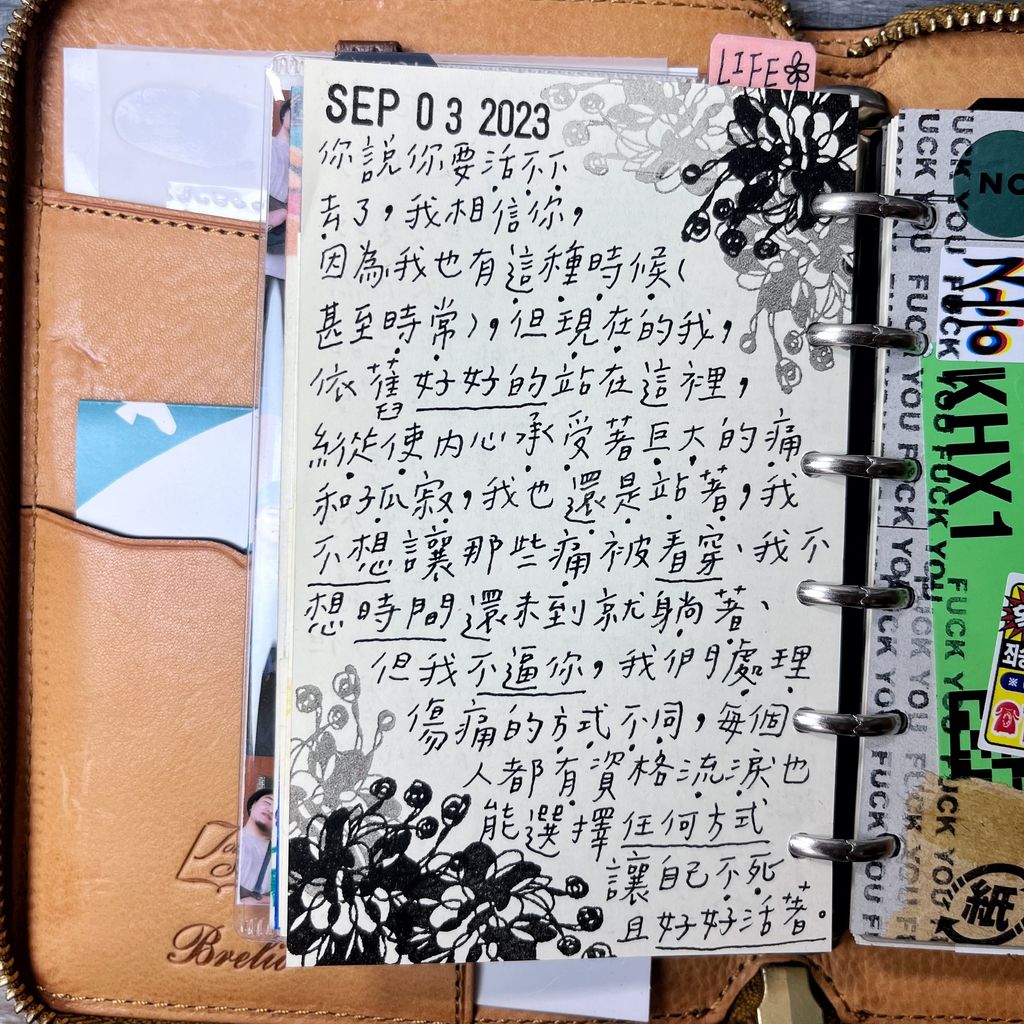 LIFE
SEP 03 2023
你說你要活不下
去了,我相信你,
因為我也有這種時候(
甚至時常),但現在的我,
依舊好好的站在這裡,
縱使內心承受著巨大的痛
和孤寂,我也還是站著,我
不想讓那些痛被看穿、我不
想時間還未到就躺著、
但我不逼你,我們處理
傷痛的方式不同,每個
人都有資格流淚也
能選擇任何方式
讓自己不死
且好好活著。
NO
KHX1
FUCK YOU FUCK YOU FUCK YOU
紙
Breliu